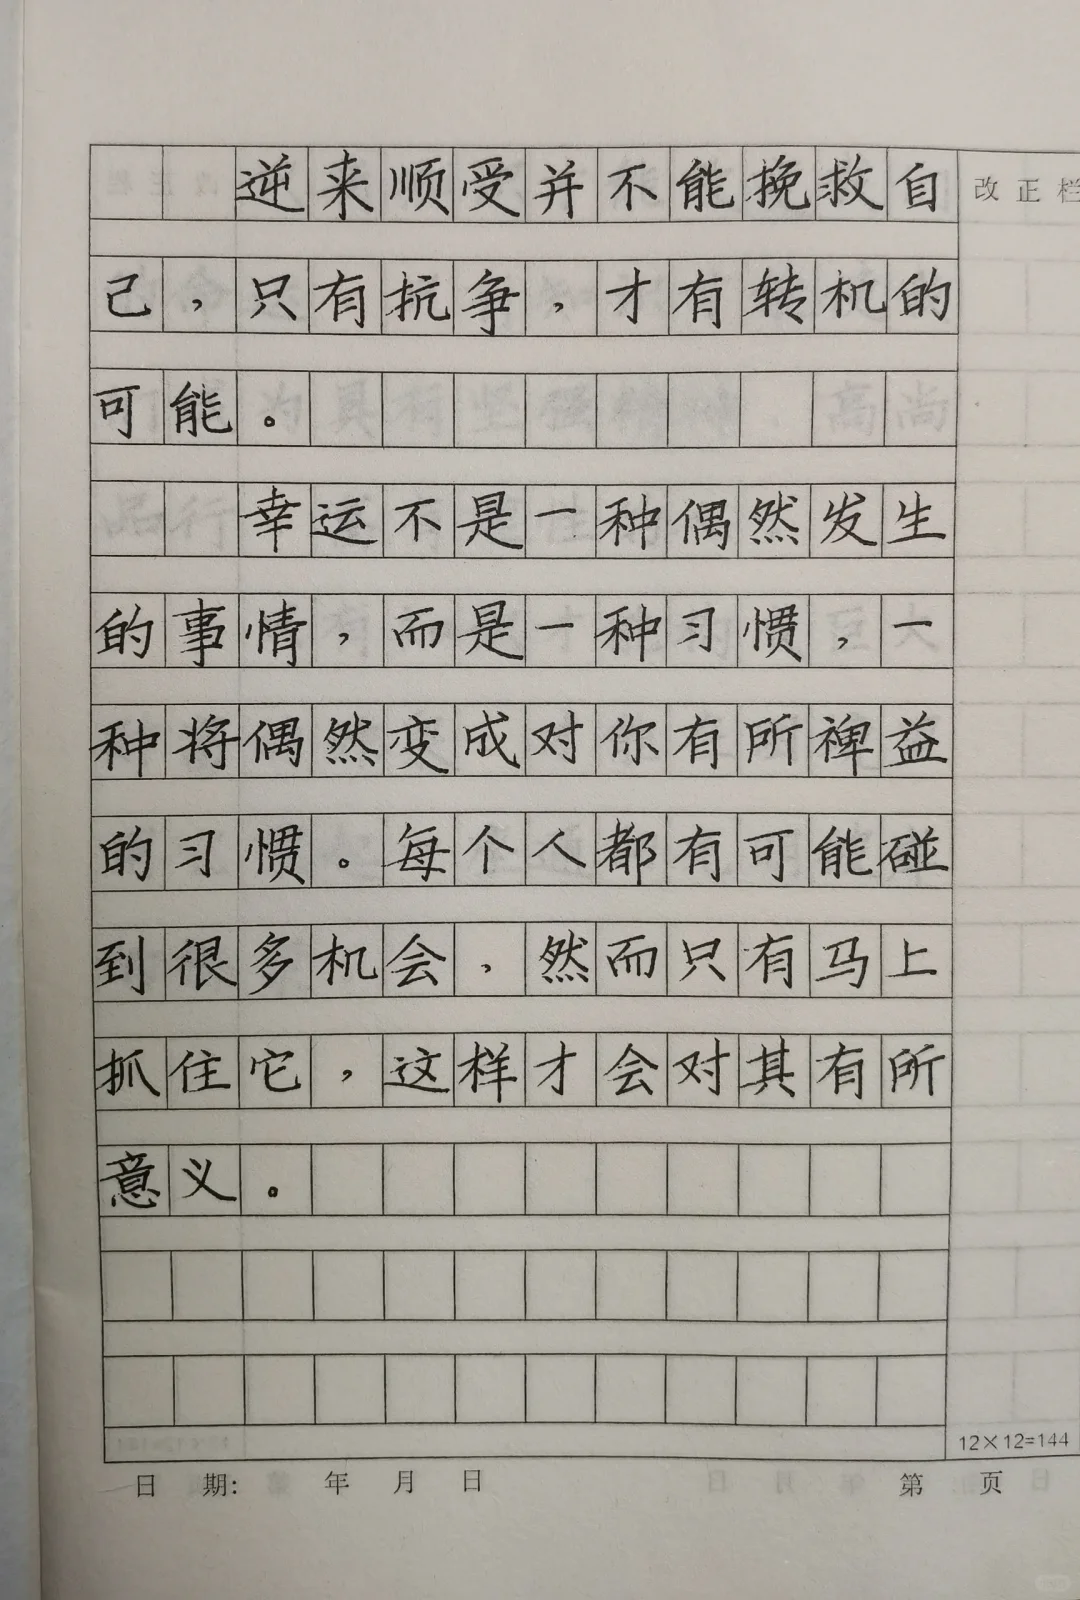 逆来顺受并不能挽救自
改正栏
己，只有抗争，才有转机的
可能。
幸运不是一种偶然发生
的事情，而是一种习惯，一
种将偶然变成对你有所裨益
的习惯。每个人都有可能碰
到很多机会，然而只有马上
抓住它，这样才会对其有所
意义。
12×12=144
日 期： 年 月 日
第 页